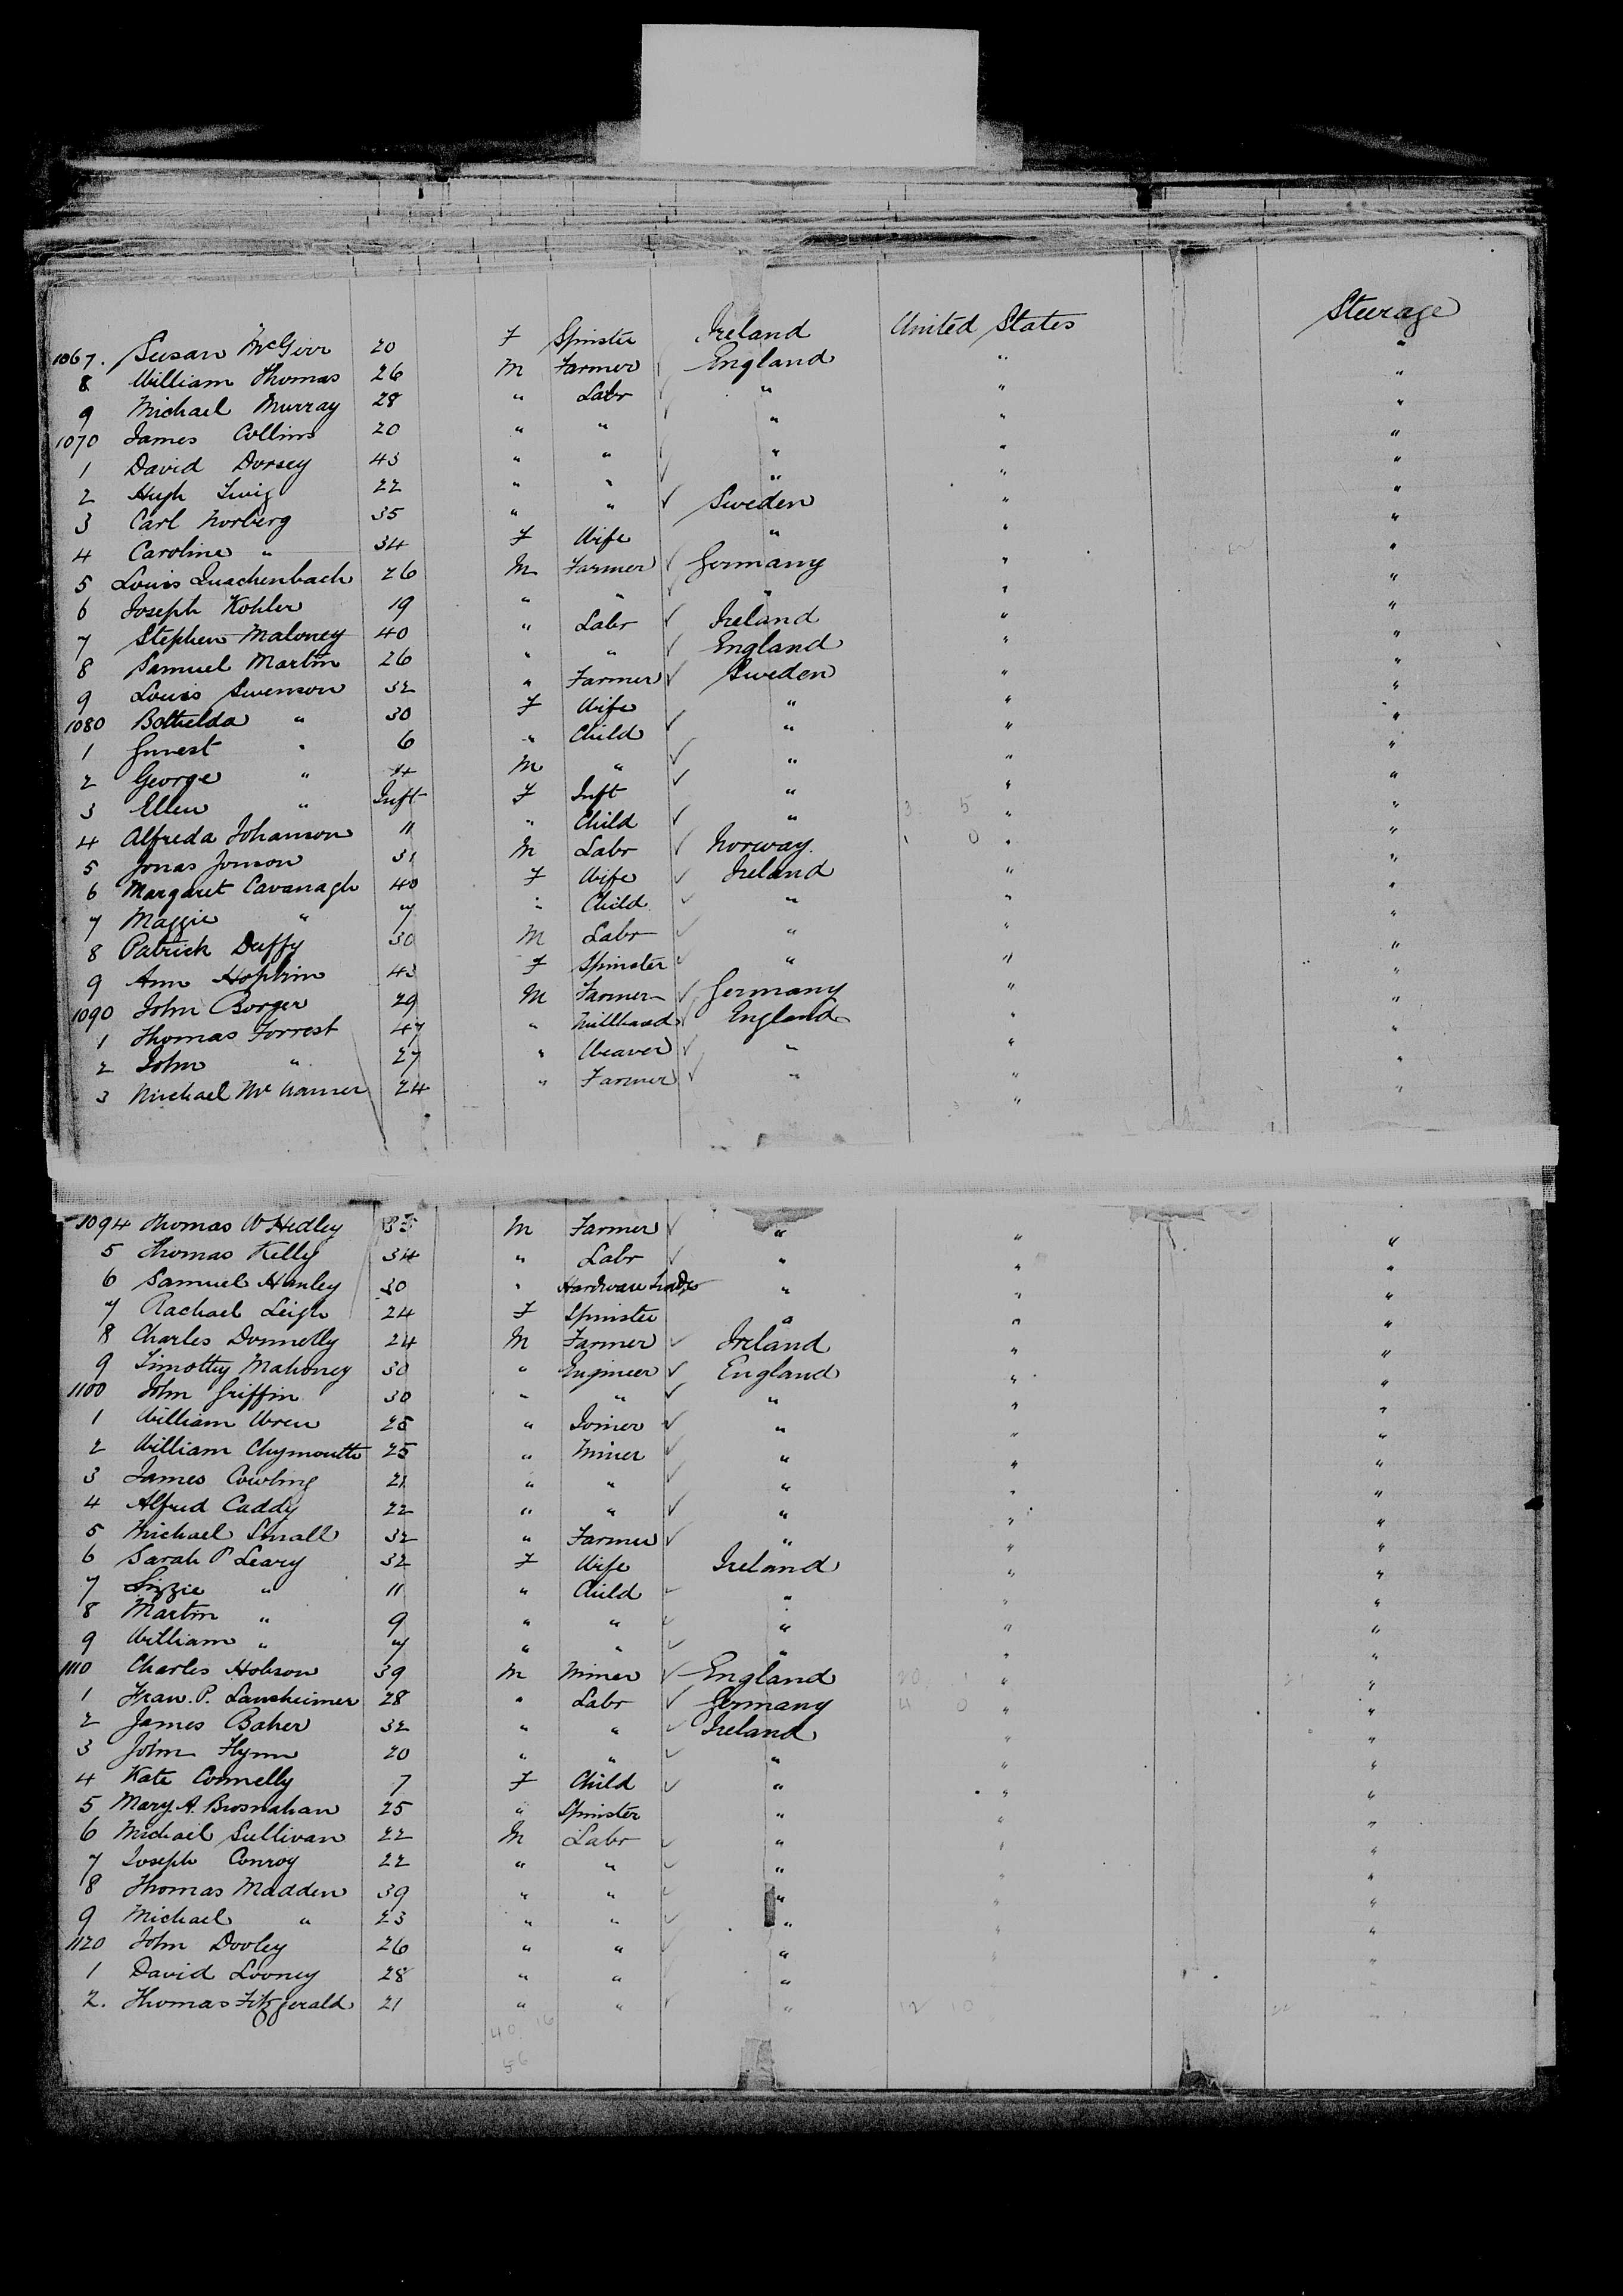 Steerage
1067. Susan McGirr 20 F Spinster Ireland United States "
8 William Thomas 26 M Farmer England " "
9 Michael Murray 28 " Labr " " "
1070 James Collins 20 " " " " "
1 David Dorsey 43 " " " " "
2 Hugh 22 " " " " "
3 Carl Norberg 35 " " Sweden " "
4 Caroline " 34 F Wife " " "
5 Louis Quachenbach 26 M Farmer Germany " "
6 Joseph Kohler 19 " " " " "
7 Stephen Maloney 40 " Labr Ireland " "
8 Samuel Martin 26 " " England " "
9 Louis Swenson 32 " Farmer Sweden " "
1080 Bothelda " 30 F Wife " " "
1 " 6 " Child " " "
2 George " 4 M " " " "
3 Ellen " Inft F Inft " " "
4 Alfreda Johanson 11 " Child " " "
5 Jonas Jonson 31 M Labr Norway. " "
6 Margaret Cavanagh 40 F Wife Ireland " "
7 Maggie " 7 " Child " " "
8 Patrick Duffy 30 M Labr " " "
9 Ann Hopkin 43 F Spinster " " "
1090 John Borger 29 M Farmer Germany " "
1 Thomas Forrest 47 " Millhand England " "
2 John " 27 " Weaver " " "
3 Michael Mc 24 " Farmer " " "
1094 Thomas W Hedley 35 M Farmer " " "
5 Thomas Kelly 34 " Labr " " "
6 Samuel Hanley 30 " Hardware " " "
7 Rachael Leigh 24 F Spinster " " "
8 Charles Donnelly 24 M Farmer Ireland " "
9 Timothy Mahoney 30 " Engineer England " "
1100 John Griffin 30 " " " " "
1 William Wren 25 " Joiner " " "
2 William Chymouth 25 " Miner " " "
3 James Cowling 21 " " " " "
4 Alfred Caddy 22 " " " " "
5 Michael Small 32 " Farmer " " "
6 Sarah P Leary 32 F Wife Ireland " "
7 Lizzie " 11 " Child " " "
8 Martin " 9 " " " " "
9 William " 7 " " " " "
1110 Charles Hobson 39 M Miner England " "
1 Fran. P. Lansheimer 28 " Labr Germany " "
2 James Baker 32 " " Ireland " "
3 John Flynn 20 " " " " "
4 Kate Connelly 7 F Child " " "
5 Mary A. Brosnahan 25 " Spinster " " "
6 Michael Sullivan 22 M Labr " " "
7 Joseph Conroy 22 " " " " "
8 Thomas Madden 39 " " " " "
9 Michael " 23 " " " " "
1120 John Dooley 26 " " " " "
1 David Looney 28 " " " " "
2. Thomas Fitzgerald 21 " " " 12 10
40 16
56